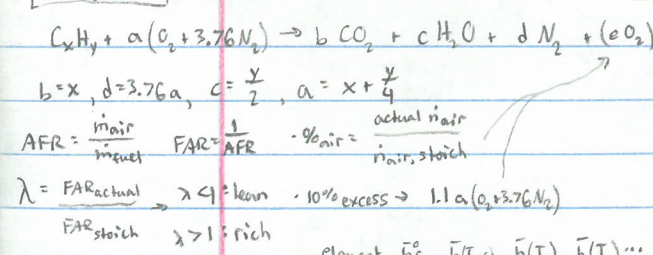 CxHy + a(O₂+3.76N₂) → b CO₂ + c H₂O + d N₂ + (e O₂)
b=x, d=3.76a, c= y/2, a= x+ y/4
AFR = ṁair/ṁfuel FAR= 1/AFR · %air = actual ṅair/ṅair, stoich
λ = FARactual/FARstoich → λ<1: lean · 10% excess → 1.1 a(O₂+3.76N₂)
λ>1: rich
element h̄°f h̄(T) h̄(T) ...